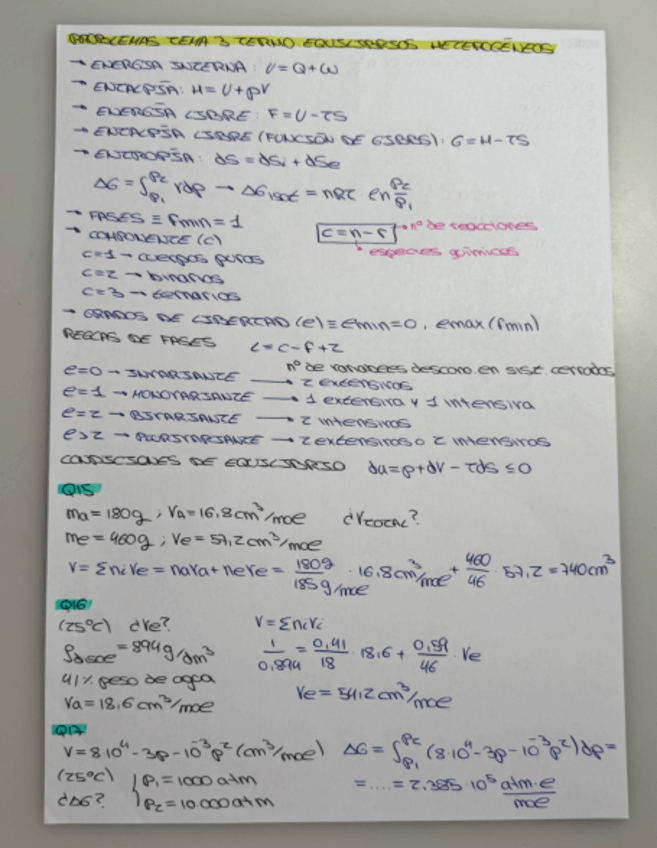 PROBLEMAS TEMA 3 TERMO EQUILIBRIOS HETEROGÉNEOS
→ ENERGÍA INTERNA: U=Q+W
→ ENTALPÍA: H=U+pV
→ ENERGÍA LIBRE: F=U-TS
→ ENTALPÍA LIBRE (FUNCIÓN DE GIBBS): G=H-TS
→ ENTROPÍA: dS=dSi+dSe
ΔG=∫_{P1}^{P2} Vdp → ΔG_{isot}=nRT·ln P2/P1
→ FASES ≡ fmin=1
→ COMPONENTE (c)
c=n-r → nº de reacciones
especies químicas
c=1 → cuerpos puros
c=2 → binarios
c=3 → ternarios
→ GRADOS DE LIBERTAD (l) ≡ lmin=0, lmax(fmin)
REGLAS DE FASES L=c-f+2
nº de variables descono. en sist. cerrados
l=0 → INVARIANTE → 2 extensivas
l=1 → MONOVARIANTE → 1 extensiva y 1 intensiva
l=2 → BIVARIANTE → 2 intensivos
l>2 → PLURIVARIANTE → 2 extensivos o 2 intensivos
CONDICIONES DE EQUILIBRIO du=p+dV-Tds≤0
Q15
ma=180g; Va=16,8cm³/mol ¿VTOTAL?
me=460g; Ve=57,2cm³/mol
V=Σni Ve=naVa+neVe= 180g/185g/mol · 16.8cm³/mol + 460/46 · 57,2=740cm³
Q16
(25ºC) ¿Ve? V=ΣniVi
ρdisol=894g/dm³ 1/0,894 = 0,41/18 · 18,6 + 0,59/46 · Ve
41% peso de agua
Va=18,6cm³/mol Ve=54,2cm³/mol
Q17
V=8·10⁴-3p-10⁻³p² (cm³/mol) ΔG=∫_{P1}^{P2} (8·10⁴-3p-10⁻³p²)dp=
(25ºC) P1=1000atm =....=2,385·10⁵ atm·l/mol
¿ΔG? P2=10.000atm